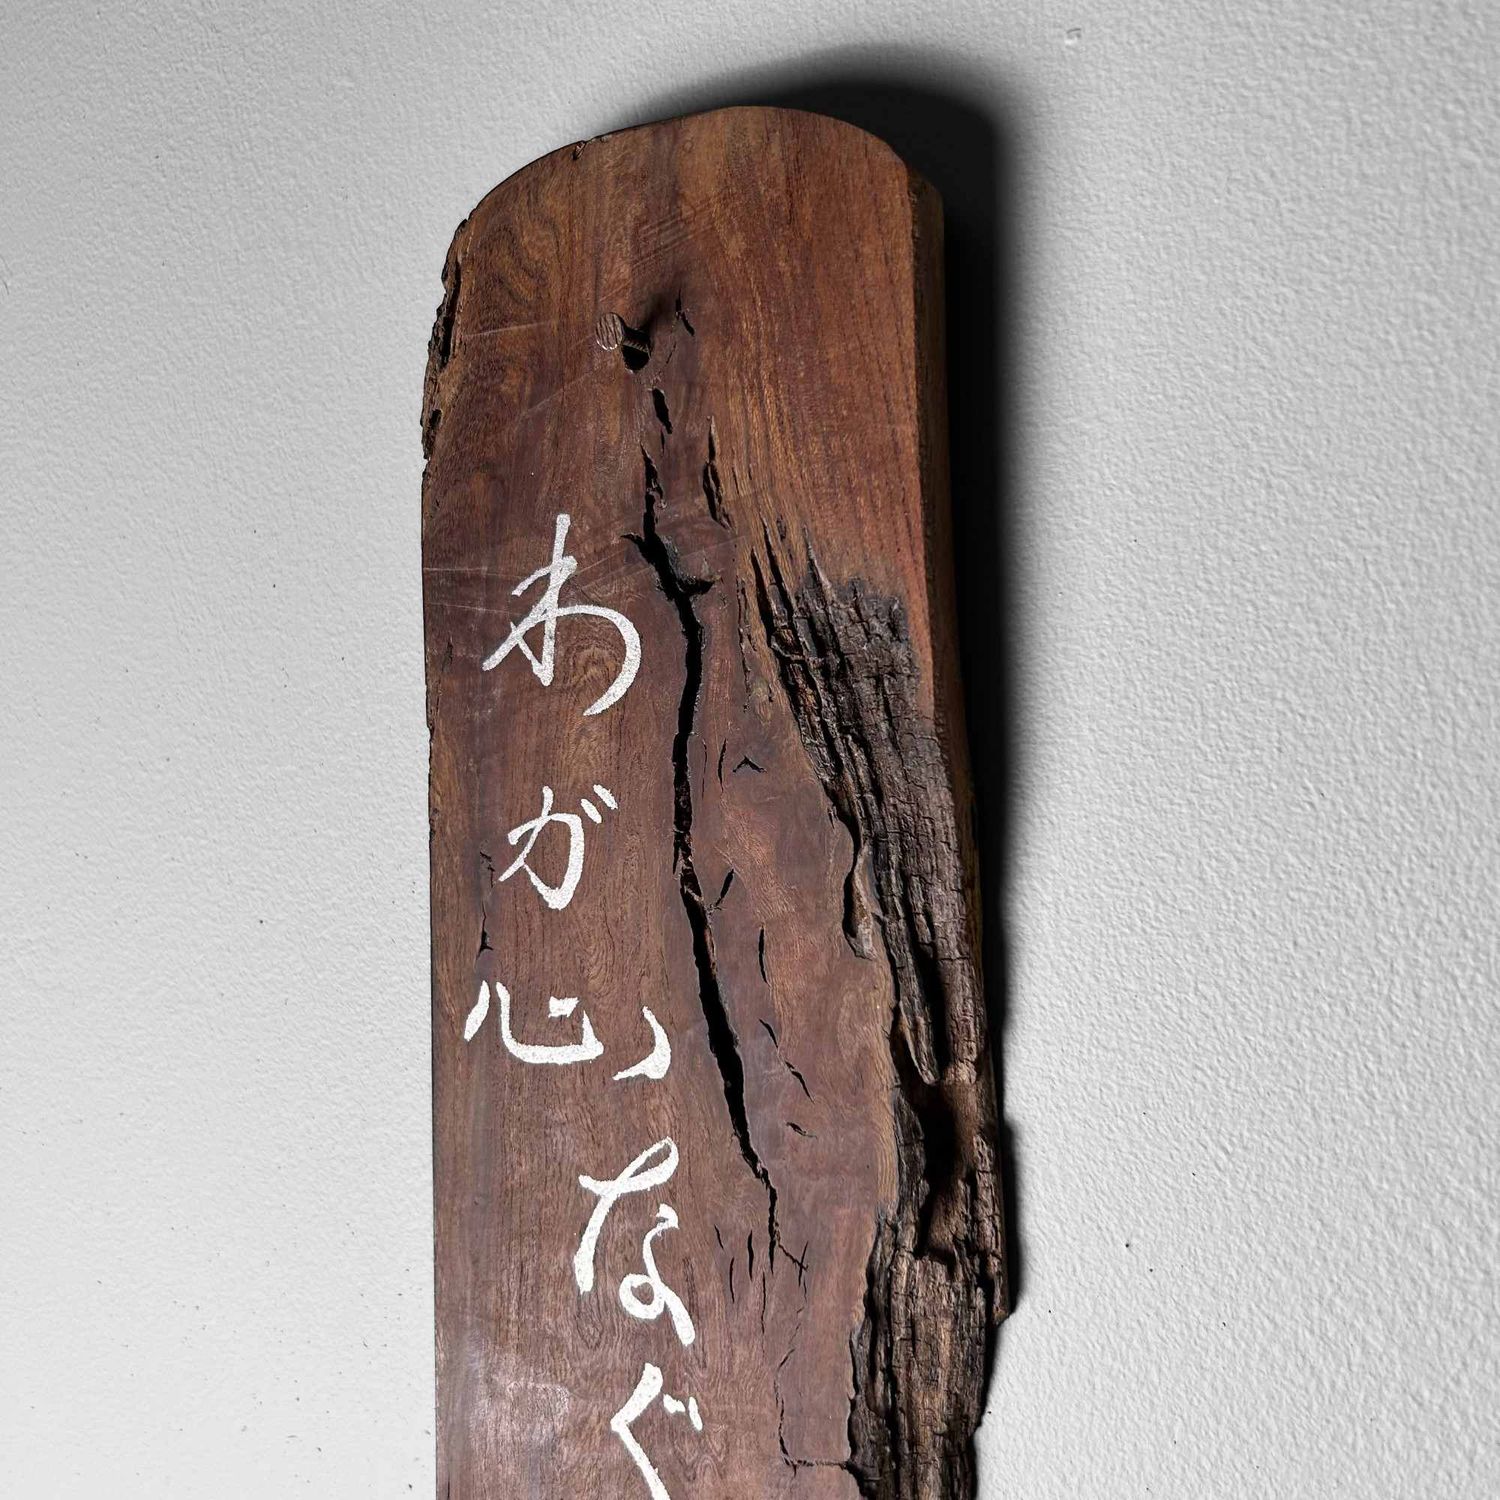 わが心なぐ